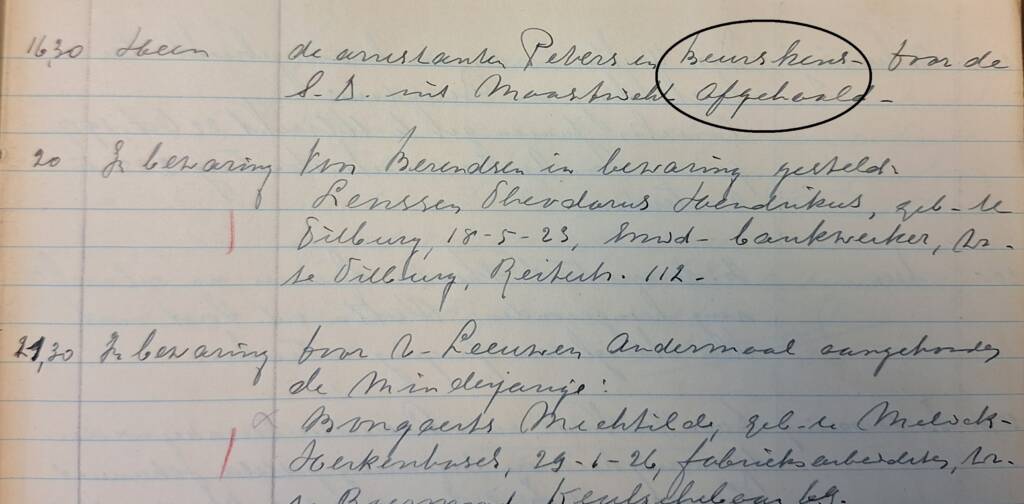 16,30 Heen de arrestanten Peters en Beurskens - door de
S.D. uit Maastricht afgehaald -
20 In bewaring Door Berendsen in bewaring gesteld:
Lenssen Theodorus Hendrikus, geb. te
Tilburg, 18-5-23, smid-bankwerker, w.
te Tilburg, Reiterstr. 112 -
21,30 In bewaring door v. Leeuwen andermaal aangehouden
de minderjarige:
Bongaerts Mechtilde, geb. te Melick-
Herkenbosch, 29-1-26, fabrieksarbeidster, w.
te